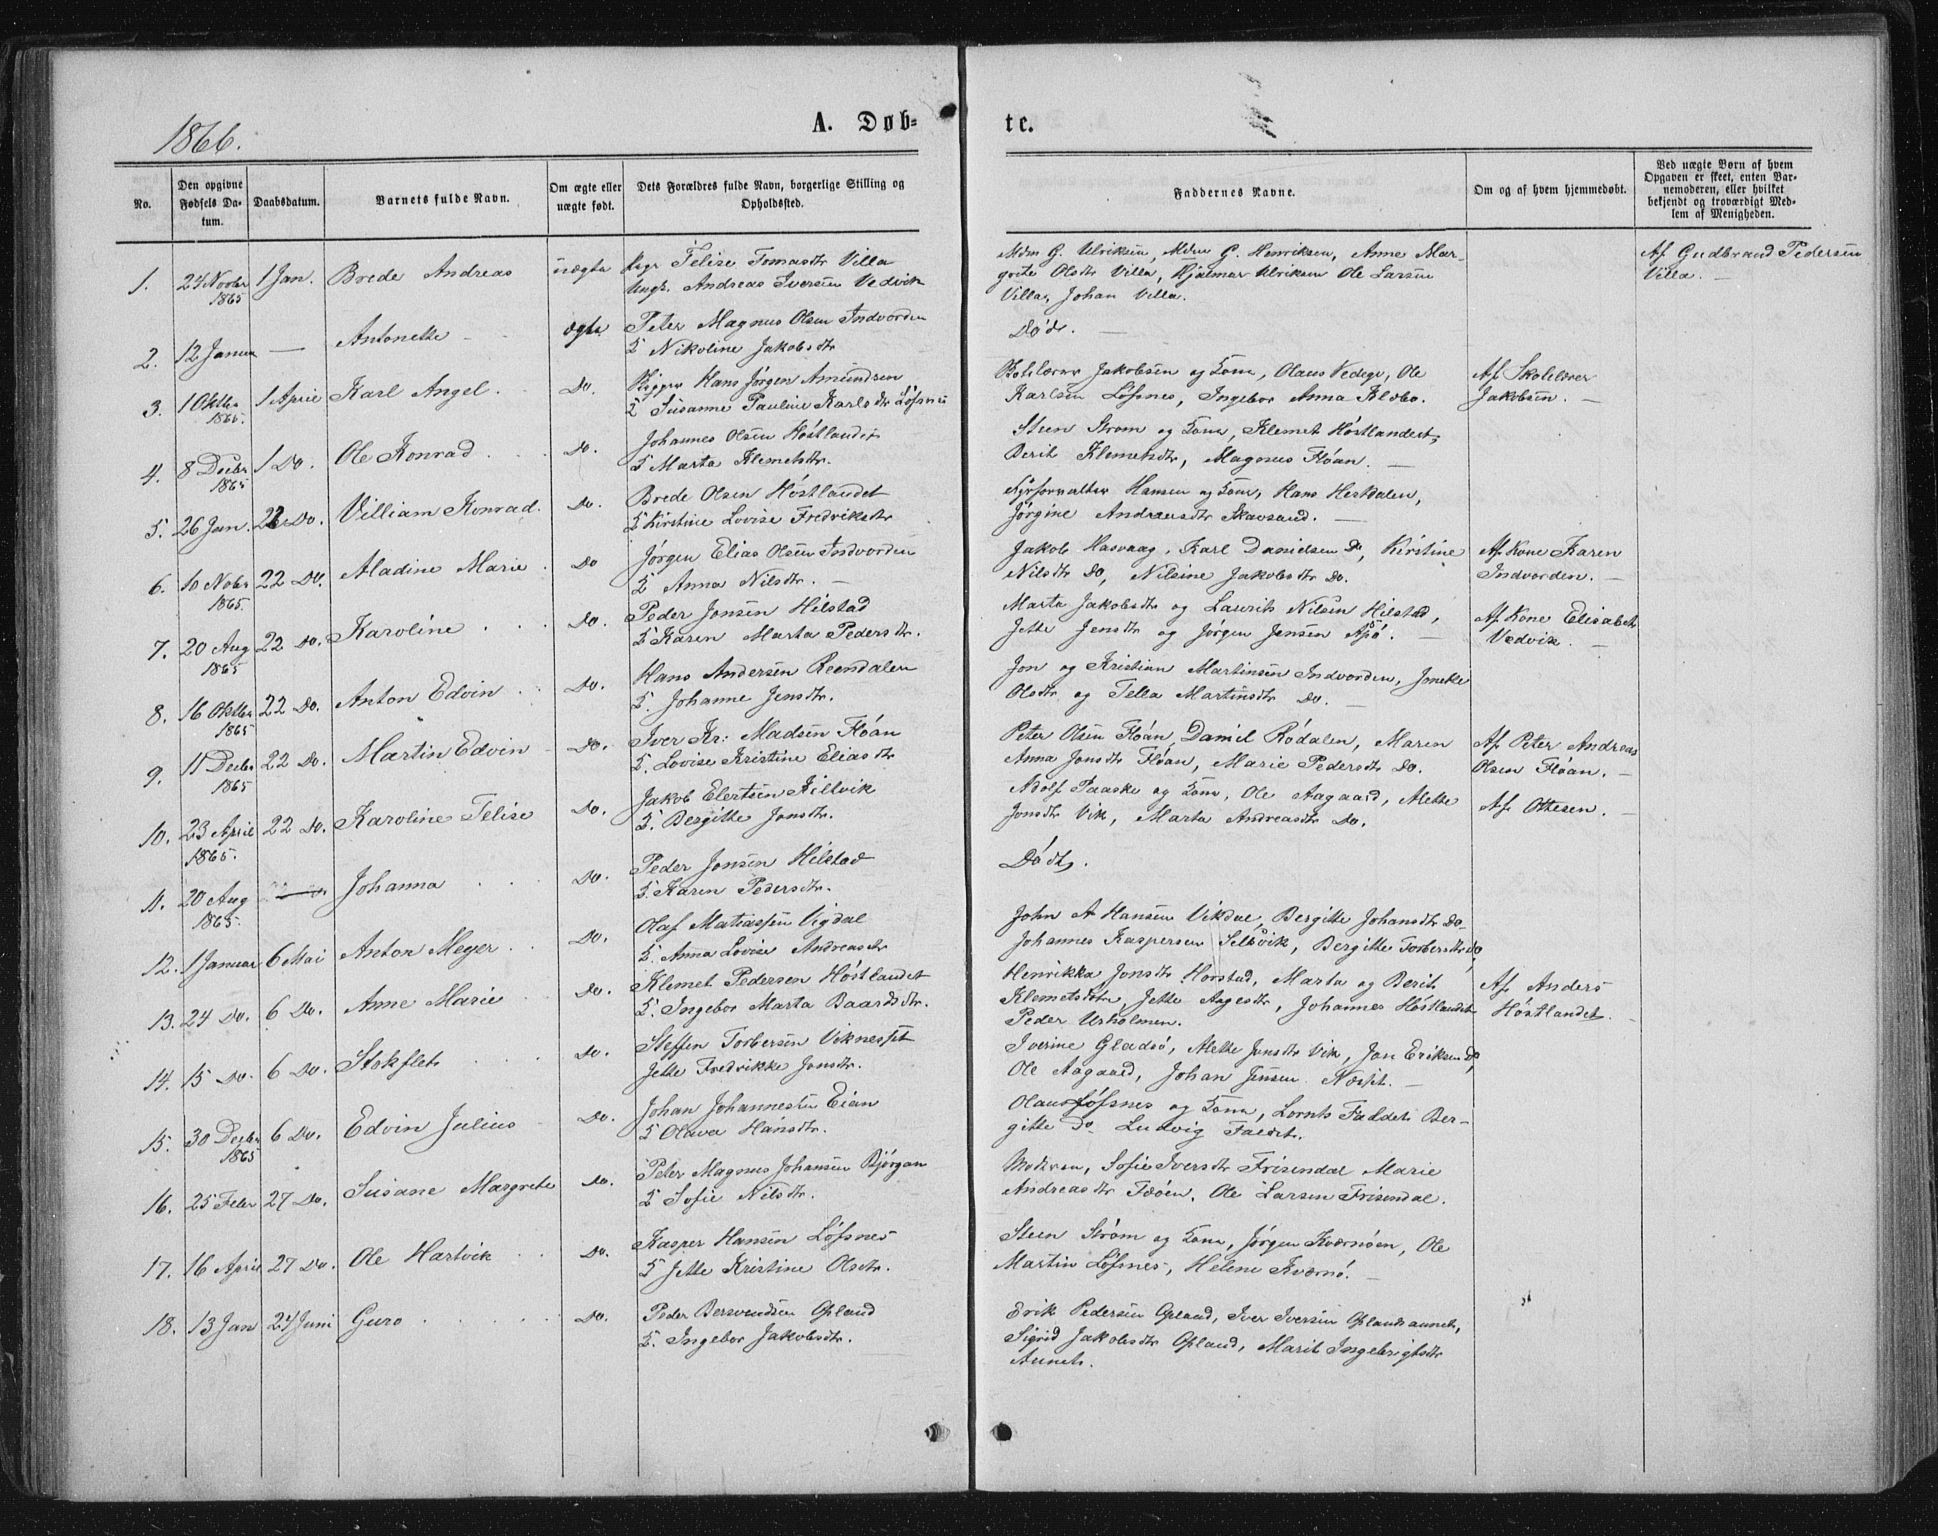 1866.
A. Døb-
te.
No.
Den opgivne Fødsels Da-tum.
Daabsdatum.
Barnets fulde Navn.
Om ægte eller uægte født.
Dets Forældres fulde Navn, borgerlige Stilling og Opholdssted.
Faddernes Navne.
Om og af hvem hjemmedøbt.
Ved uægte Børn af hvem Opgaven er skeet, enten Bar-nemoderen, eller hvilket bekjendt og troværdigt Med-lem af Menigheden.
1. 24 Novbr 1865 1 Jan. Brede Andreas uægte Felise Tomasdtr Villa
Ungk. Andreas Iversen Vedvik
Mdm G. Ulriksen, Mdm G. Henriksen, Anne Mar-
grete Olsdtr Villa, Hjalmar Ulriksen Ole Larsen
Villa, Johan Villa.
Af Gudbrand Pedersen
Villa. —
2. 12 Januar — Antonette ægte Peter Magnus Olsen Indvorden
Nikoline Jakobsdtr
Død. —
3. 1 Oktbr 1865. 1 April Karl Angel. Do. Hans Jørgen Amundsen
Susanne Pauline Karlsdtr Løfsnes
Jakobsen og Kone, Olaus Vedege, Ole
Karlsen Løfsnes, Ingebor Anna Klæbo.
Af Skolelærer
Jakobsen. —
4. 8 Decbr 1865 1 Do. Ole Konrad Do. Johannes Olsen Høstlandet
Marta Klemetsdtr.
Steen Strøm og Kone, Klemet Høstlandet,
Berit Klemetsdtr, Magnus Fløan. —
5. 26 Jan. 22 Do. Villiam Konrad. Do. Brede Olsen Høstlandet
Kirstine Lovise Fredriksdtr
Fyrforvalter Hansen og Kone, Hans Heskdalen,
Jørgine Andreasdtr Skavsand. —
6. 10 Nobr 1865. 22 Do. Aladine Marie Do Jørgen Elias Olsen Indvorden
Anna Nilsdtr. —
Jakob Hasvaag, Karl Danielsen Do, Kirstine
Nilsdtr Do, Nilsine Jakobsdtr Do.
Af Kone Karen
Indvorden. —
7. 20 Aug 1865 22 Do. Karoline Do. Peder Jonsen Hilstad
Karen Marta Pedersdtr.
Marta Jakobsdtr og Laurits Nilsen Hilstad,
Jette Jensdtr og Jørgen Jensen Apø. —
Af Kone Elisabet
Vedvik. —
8. 16 Oktbr 1865 22 Do. Anton Edvin Do. Hans Andersen Reendalen
Johanne Jensdtr.
Jon og Kristian Martinsen Indvorden, Jonette
Olsdtr og Tella Martinsdtr Do. —
9. 11 Decbr 1865 22 Do. Martin Edvin Do. Iver Kr: Madsen Fløan
Lovise Kristine Eliasdtr
Peter Olsen Fløan, Daniel Rødalen, Maren
Anna Jonsdtr Fløan, Marie Pedersdtr Do.
Af Peter Andreas
Olsen Fløan. —
10. 23 April 1865. 22 Do. Karoline Felise Do. Jakob Elertsen
Bergitte Jonsdtr.
Adolf Paaske og Kone, Ole Aagaard, Mette
Jonsdtr Vik, Marta Andreasdtr Do.
Af Ottesen. —
11. 20 Aug 1865. Johanna Do. Peder Jonsen Hilstad
Karen Pedersdtr.
Dødt.
12. 1 Januar 6 Mai Anton Meyer Do. Olaf Matiassen Vigdal
Anna Lovise Andreasdtr
John A Hansen Vikdal, Bergitte Johansdtr Do
Johannes Kaspersen Selsvik, Bergitte Torbersdtr Do,
13. 24 Do. 6 Do. Anne Marie Do. Klemet Pedersen Høstlandet
Ingebor Marta Baardsdtr.
Henrikka Jonsdtr Horstad, Marta og Berit
Klemetsdtr, Jette Aagesdtr, Johannes Høstlandet
Peder Urholmen.
Af Anders
Høstlandet.
14. 15 Do. 6 Do. Stokflet Do. Steffen Torbersen Viknesset
Jette Fredrikke Jonsdtr.
Iverine Gladsø, Mette Jonsdtr Vik, Jon Eriksen Do,
Ole Aagaard, Johan Jensen Næsset. —
15. 30 Decbr 1865 6 Do. Edvin Julius Do. Johan Johannesen Eian
Olava Hansdtr.
Olaus Løfsnes og Kone, Lornts Faddet Ber-
gitte Do Ludvig Faldet.
16. 25 Febr 27 Do. Susane Margrete Do. Peter Magnus Johansen Bjørgan
Sofie Nilsdtr.
Moderen, Sofie Iversdtr Frisendal Marie
Andreasdtr, Ole Larsen Frisendal.
17. 16 April 27 Do. Ole Hartvik Do. Kasper Hansen Løfsnes
Jette Kristine Olsdtr.
Steen Strøm og Kone, Jørgen Kvernøen, Ole
Martin Løfsnes, Helene Kvernø. —
18. 13 Jan 24 Juni Guro Do. Peder Bersvendsen Opland
Ingebor Jakobsdtr.
Erik Pedersen Opland, Iver Iversen Oplandsaunet,
Sigrid Jakobsdtr Opland, Marit Ingebrigtsdtr
Aunet.